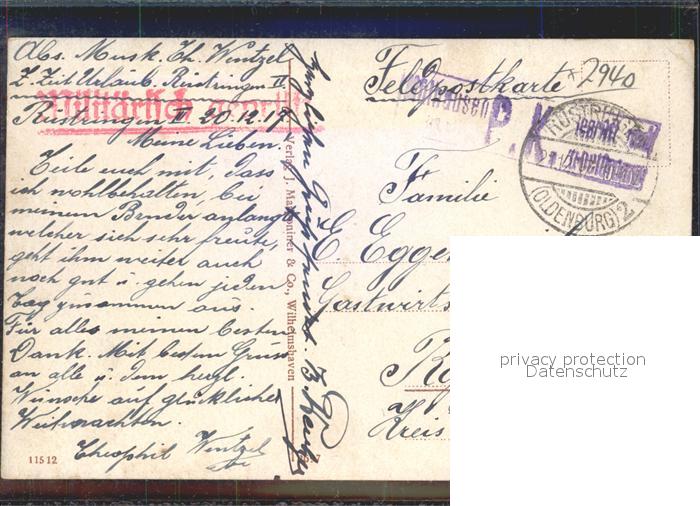 Abs. Musk. Th. Wintzel
Z. Zeit Urlaub. Rüstringen II
Militärisch geprüft
Rüstringen II. 20.12.17
Meine Lieben.
Teile euch mit, dass
ich wohlbehalten, bei
meinem Bruder anlangte
welcher sich sehr freute,
geht ihm weiter auch
noch gut u. gehen jeden
Tag zusammen aus.
Für alles meinen besten
Dank. Mit bestem Gruss
an alle u. dem herzl.
Wünsche auf glückliches
Weihnachten.
Theophil Wintzel
11512
Verlag J. & Co., Wilhelmshaven
Feldpostkarte
2940
P.K.
RÜSTRINGEN
(OLDENBURG) 2
Familie
E. Egge
Gastwirts
Kreis
privacy protection
Datenschutz